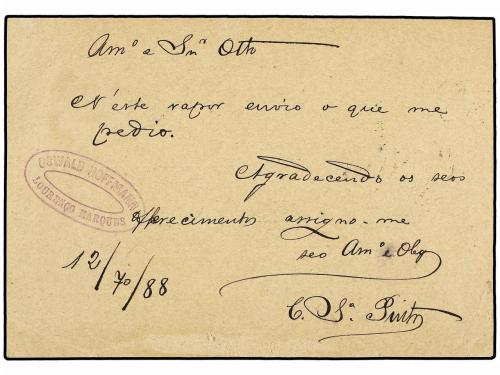 Amº e Snr Otto
N'éste vapor envio o que me
pedio.
Agradecendo os seos
offerecimentos assigno-me
seo Amº e Obg
C. Sª. Pinto
OSWALD HOFFMANN
LOURENÇO MARQUES
12/70/88